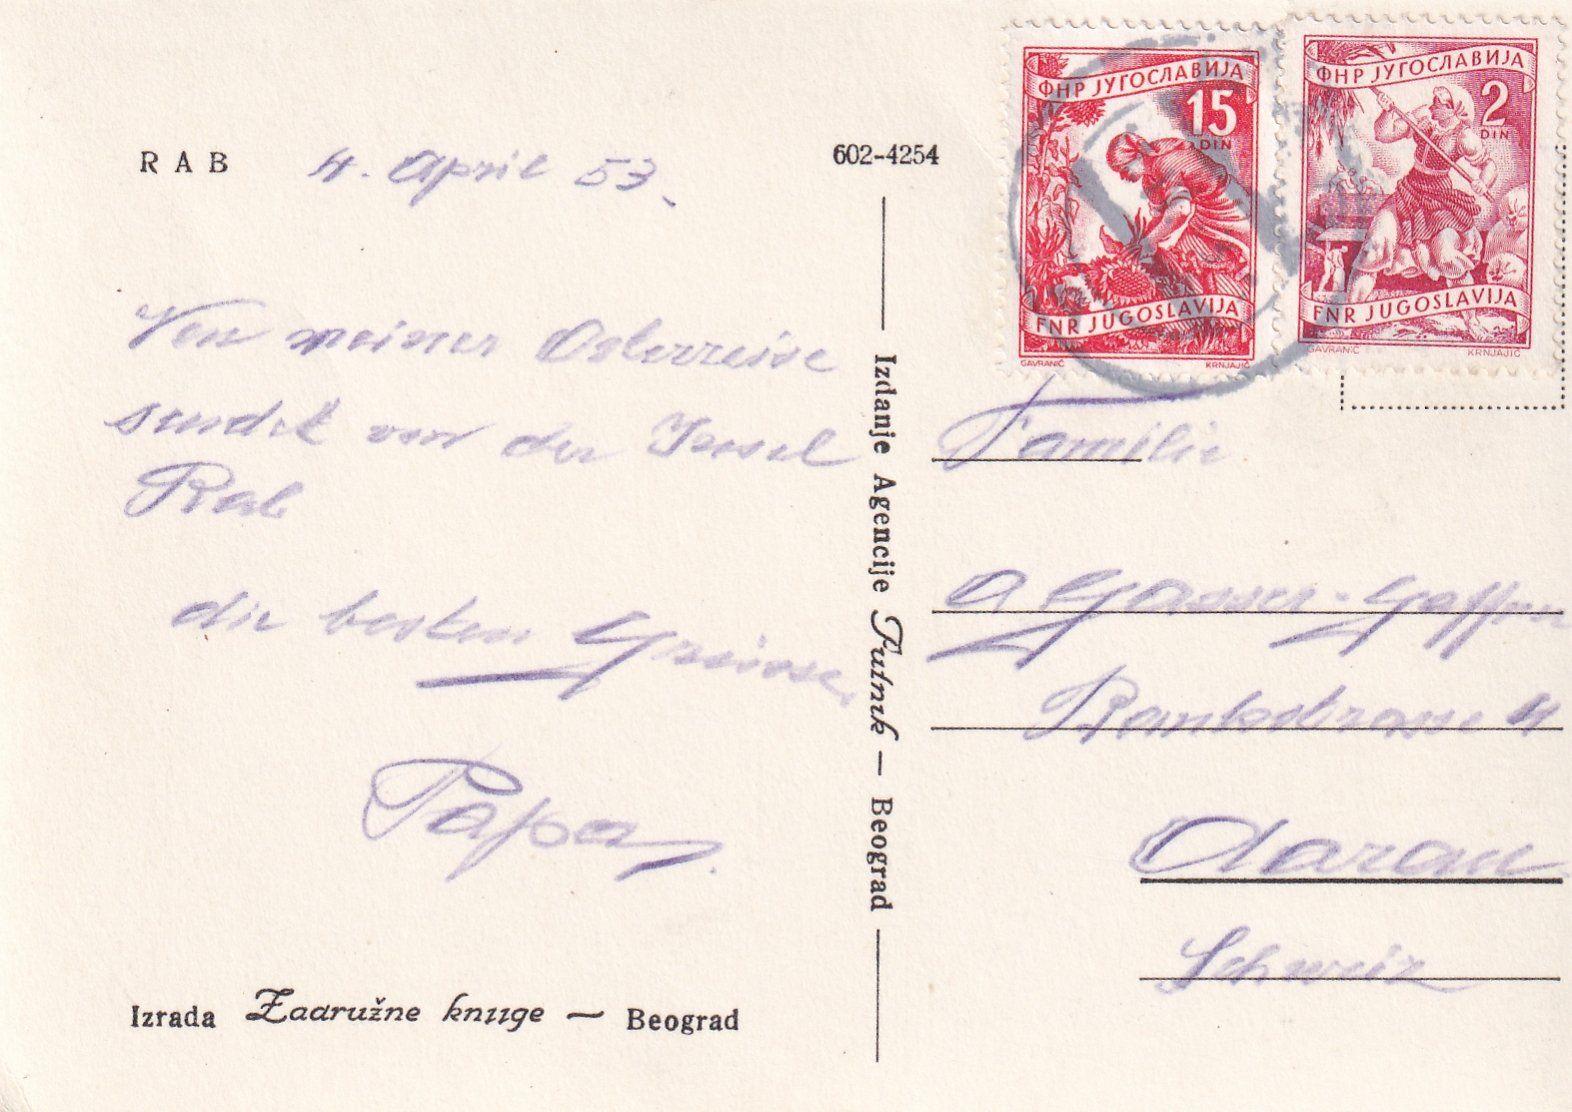 RAB 4. April 53.
602-4254
Von meiner Osterreise
sendet von der Insel
Rab
die besten Grüsse,
Papa
Izrada Zadružne knjige — Beograd
Izdanje Agencije Putnik — Beograd
ФНР ЈУГОСЛАВИЈА
15
DIN
FNR JUGOSLAVIJA
GAVRANIĆ KRNJAJIĆ
ФНР ЈУГОСЛАВИЈА
2
DIN
FNR JUGOSLAVIJA
GAVRANIĆ KRNJAJIĆ
Familie
A Gasser-
4
Aarau
Schweiz